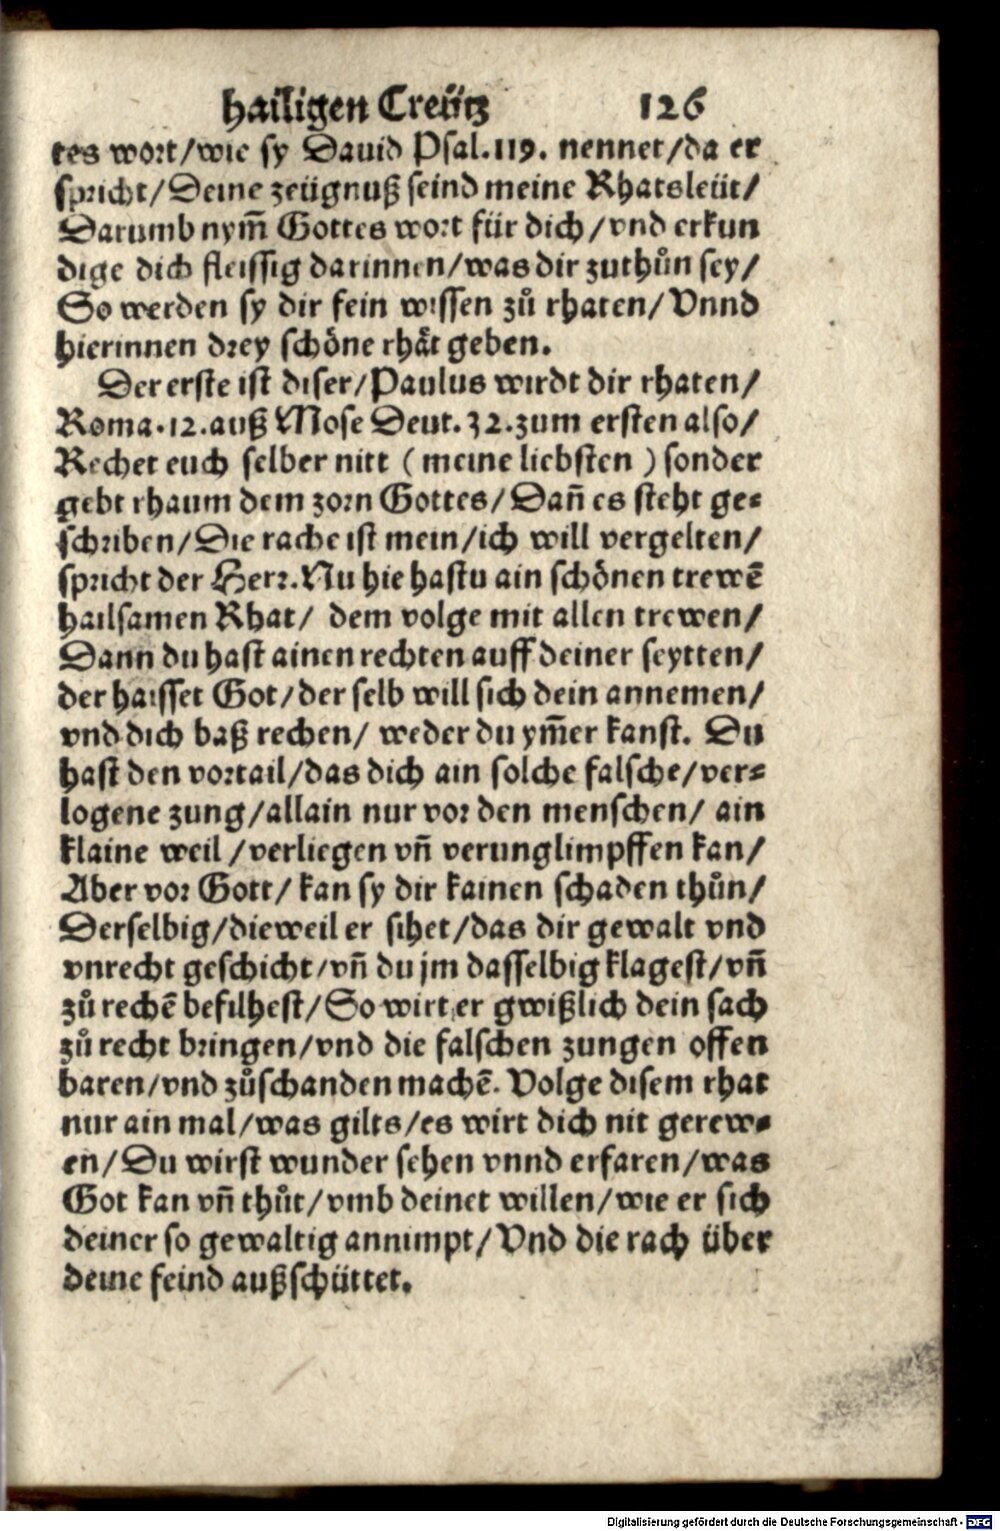 hailigen Creütz 126
tes wort/wie sy Dauid Psal.119. nennet/da er
spricht/Deine zeügnuß seind meine Rhatsleüt/
Darumb nym̃ Gottes wort für dich/vnd erkun
dige dich fleissig darinnen/was dir zuthůn sey/
So werden sy dir fein wissen zů rhaten/Vnnd
hierinnen drey schöne rhät geben.
Der erste ist diser/Paulus wirdt dir rhaten/
Roma.12.auß Mose Deut.32.zum ersten also/
Rechet euch selber nitt (meine liebsten) sonder
gebt rhaum dem zorn Gottes/Dañ es steht ge⸗
schriben/Die rache ist mein/ich will vergelten/
spricht der Herr.Nu hie hastu ain schönen trewẽ
hailsamen Rhat/ dem volge mit allen trewen/
Dann du hast ainen rechten auff deiner seytten/
der haisset Got/der selb will sich dein annemen/
vnd dich baß rechen/ weder du ym̃er kanst. Du
hast den vortail/das dich ain solche falsche/ver⸗
logene zung/allain nur vor den menschen/ ain
klaine weil/verliegen vñ verunglimpffen kan/
Aber vor Gott/ kan sy dir kainen schaden thůn/
Derselbig/dieweil er sihet/das dir gewalt vnd
vnrecht geschicht/vñ du jm dasselbig klagest/vñ
zů rechẽ befilhest/So wirt er gwißlich dein sach
zů recht bringen/vnd die falschen zungen offen
baren/vnd zůschanden machẽ. Volge disem rhat
nur ain mal/was gilts/es wirt dich nit gerew⸗
en/Du wirst wunder sehen vnnd erfaren/was
Got kan vñ thůt/vmb deinet willen/wie er sich
deiner so gewaltig annimpt/Vnd die rach über
deine feind außschüttet.
Digitalisierung gefördert durch die Deutsche Forschungsgemeinschaft - DFG